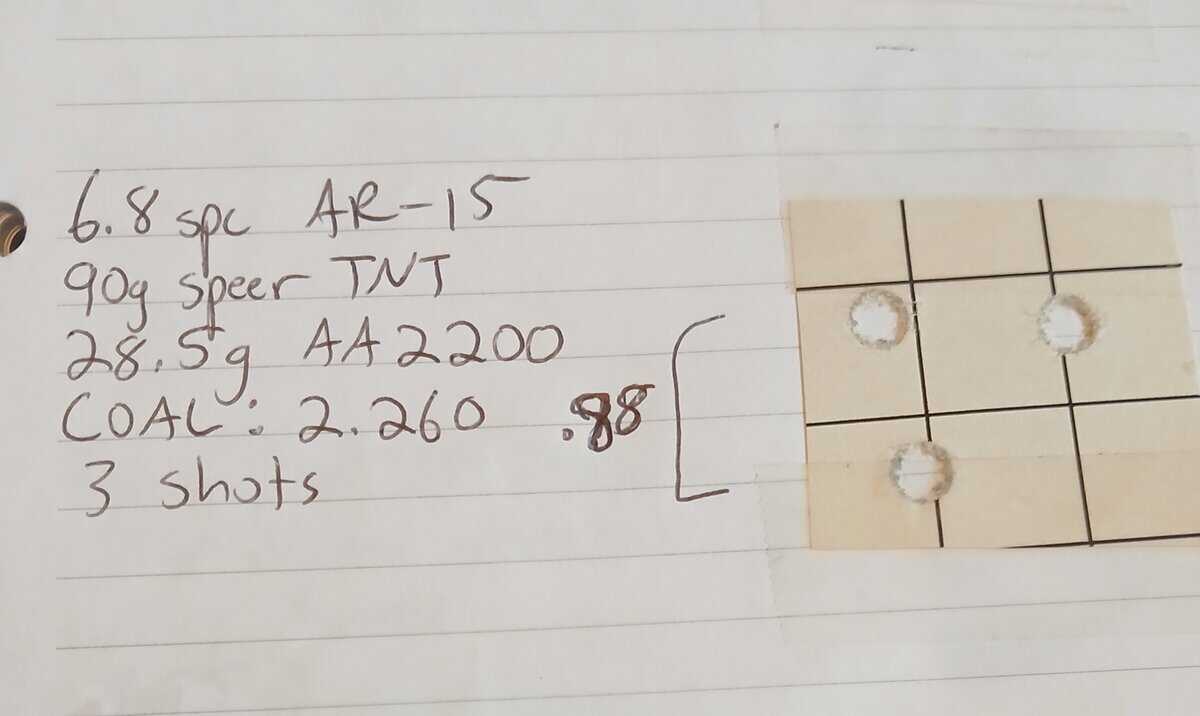 6.8 spc AR-15
90g speer TNT
28.5g AA2200
COAL: 2.260 .88
3 shots